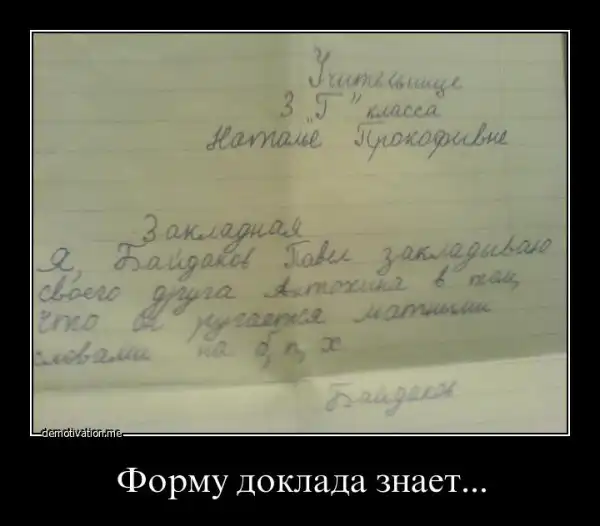 Учительнице
3 "Г" класса
Наталье Прокофивне
Закладная
Я, Байдаков Павел закладываю
своего друга Антохина в том,
что он ругается матными
словами на б, п, х
Байдаков
demotivation.me
Форму доклада знает...